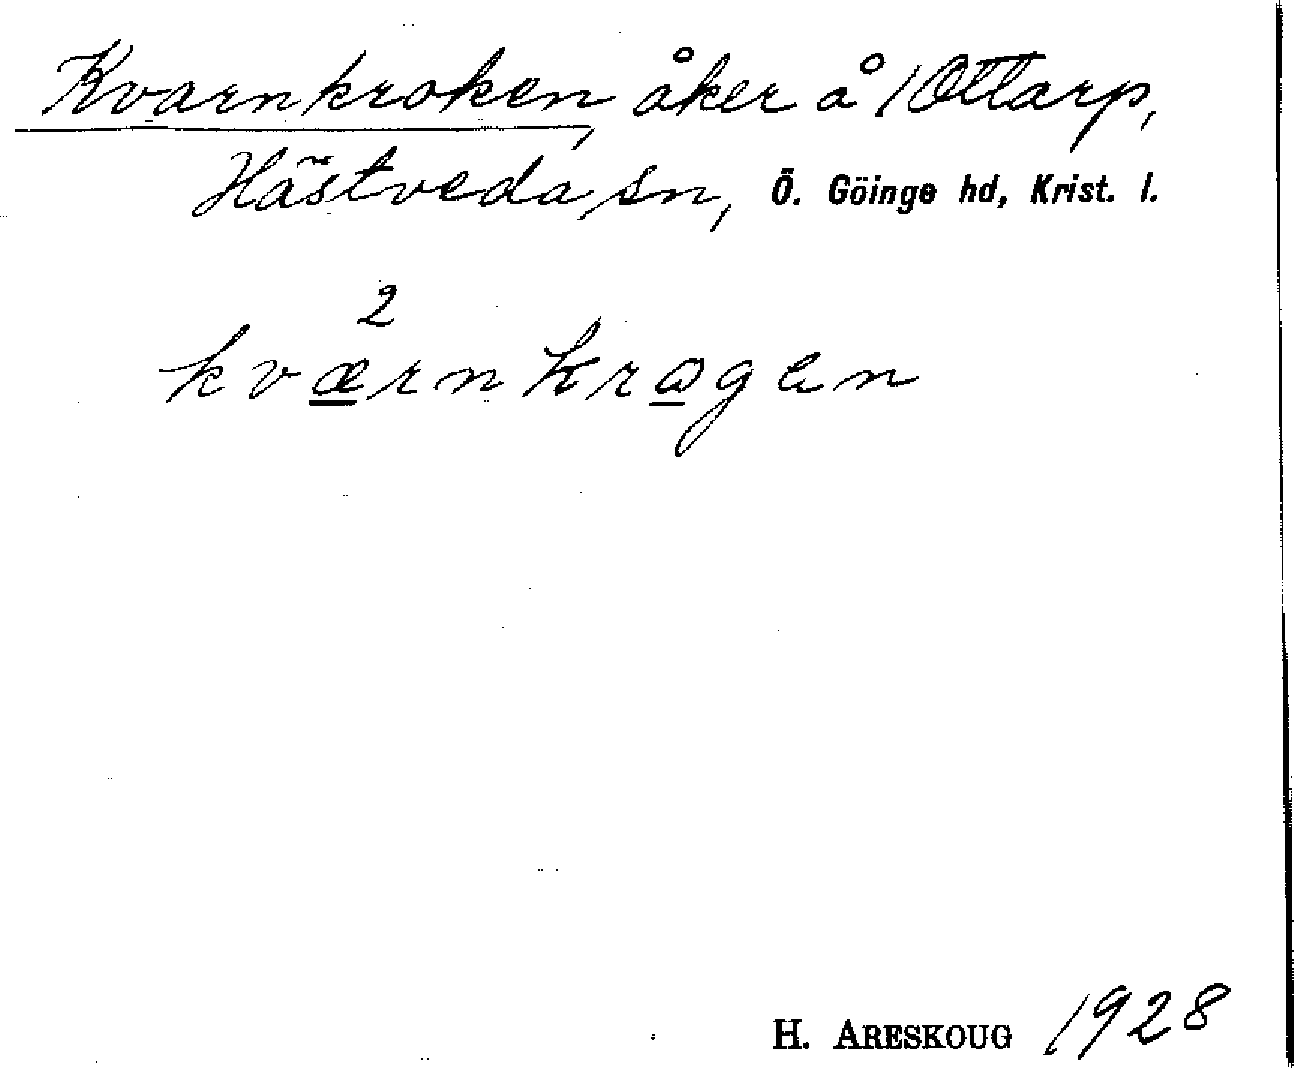 Kvarnkroken, åker å 1 Ottarp,
Hästveda sn, Ö. Göinge hd, Krist. l.
2
kværnkrogen
H. ARESKOUG 1928